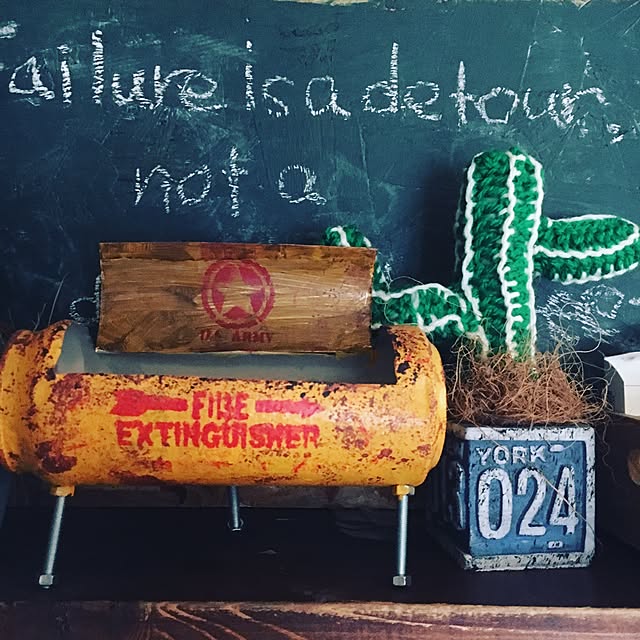 Failure is a detour,
not a
U.S. ARMY
FIRE
EXTINGUISHER
YORK
024